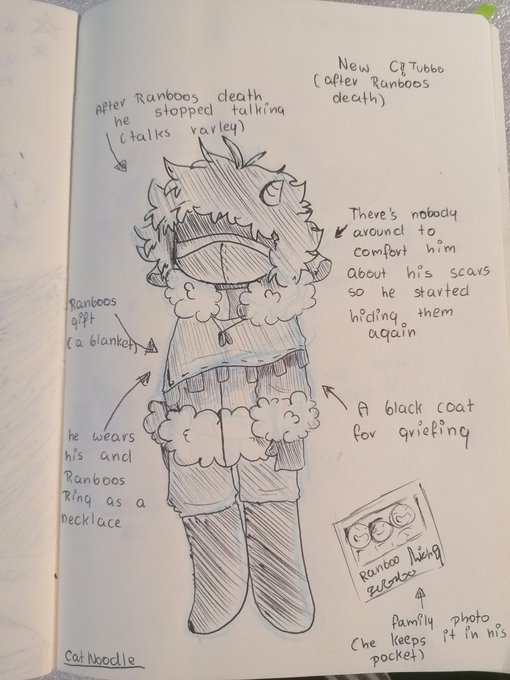 New C!Tubbo
(after Ranboos
death)
After Ranboos death
he stopped talking
(talks varley)
There's nobody
around to
comfort him
about his scars
so he started
hiding them
again
Ranboos
gift
(a blanket)
A black coat
for griefing
he wears
his and
Ranboos
Ring as a
necklace
Ranboo
family photo
(he keeps it in his
pocket)
Cat Noodle